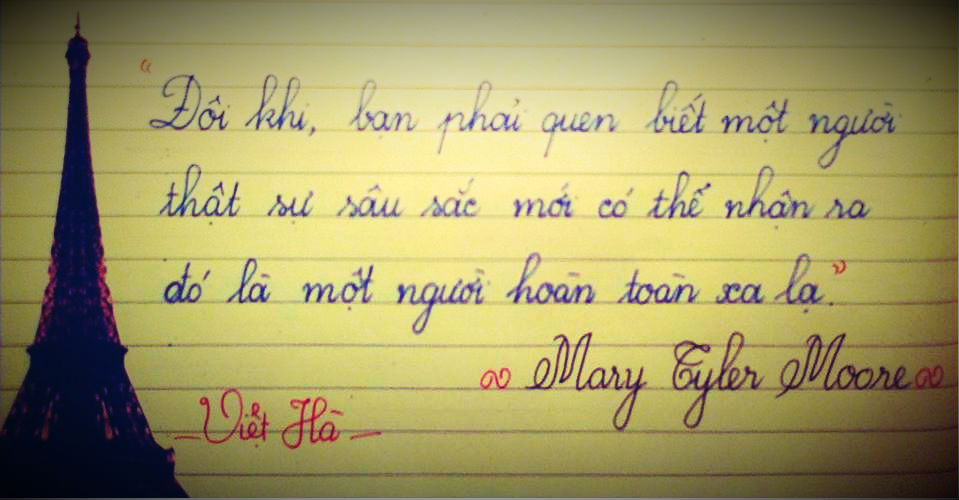 “Đôi khi, bạn phải quen biết một người
thật sự sâu sắc mới có thể nhận ra
đó là một người hoàn toàn xa lạ.”
Mary Tyler Moore
_Việt Hà_